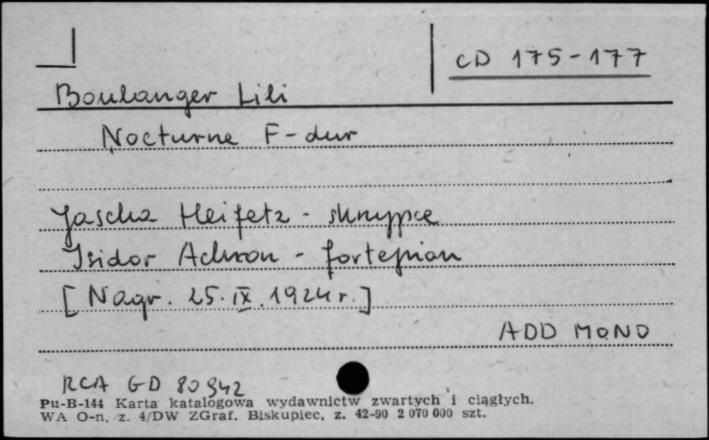 CD 175-177
Boulanger Lili
Nocturne F-dur
Jascha Heifetz - skrzypce
Isidor Achron - fortepian
[Nagr. 25.IX.1924r.]
ADD MONO
RCA GD 80942
Pu-B-144 Karta katalogowa wydawnictw zwartych i ciągłych.
WA O-n, z. 4/DW ZGraf. Biskupiec, z. 42-90 2 070 000 szt.